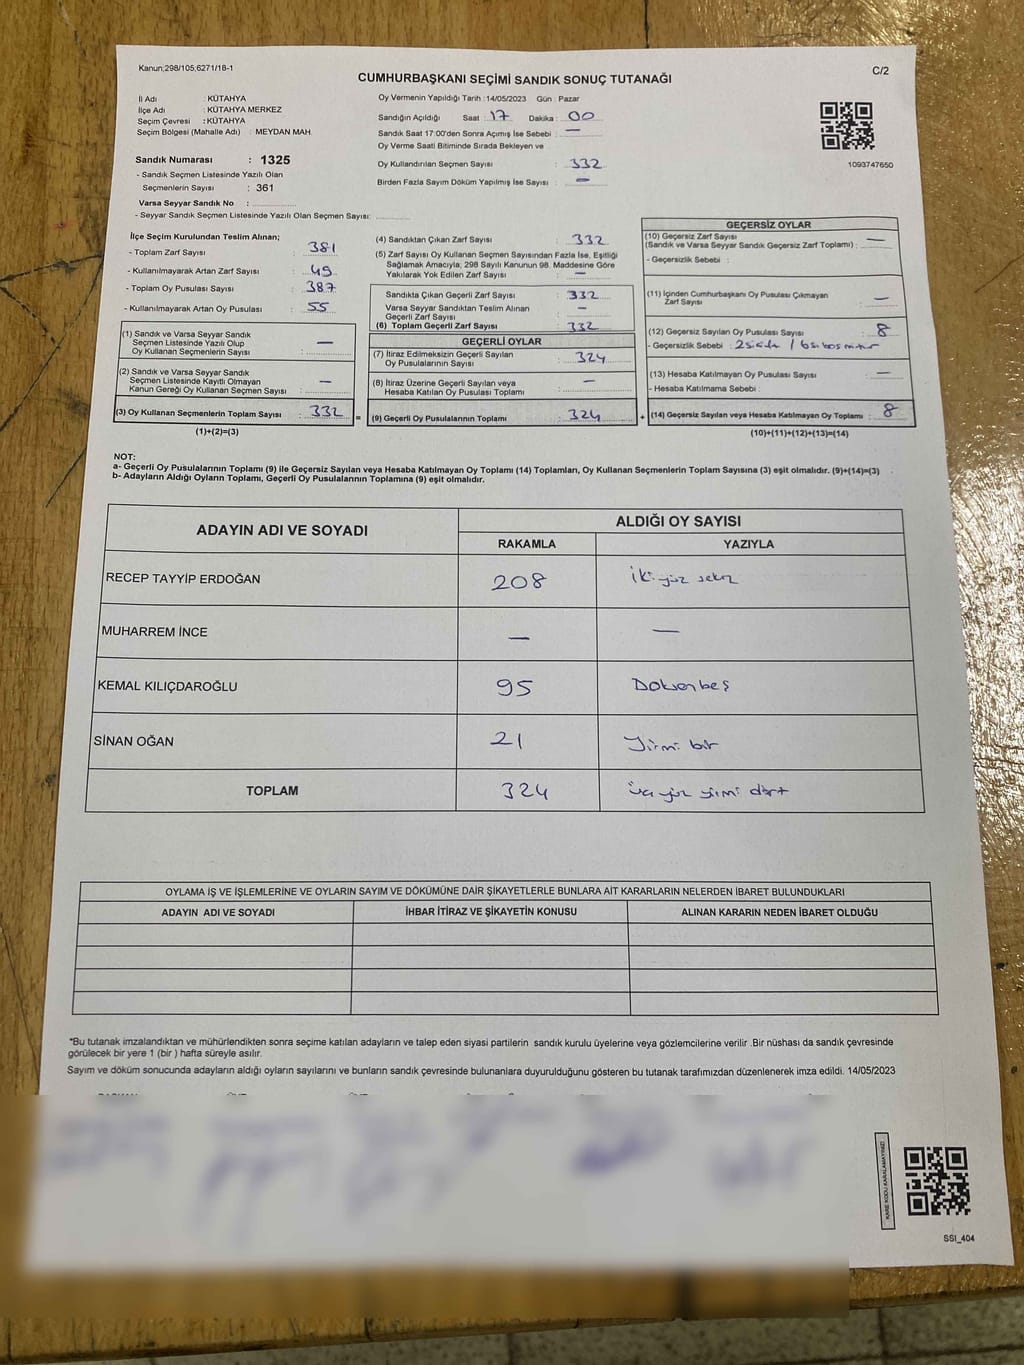 Kanun;298/105;6271/18-1
CUMHURBAŞKANI SEÇİMİ SANDIK SONUÇ TUTANAĞI
C/2
İl Adı : KÜTAHYA
İlçe Adı : KÜTAHYA MERKEZ
Seçim Çevresi : KÜTAHYA
Seçim Bölgesi (Mahalle Adı) : MEYDAN MAH.
Sandık Numarası : 1325
- Sandık Seçmen Listesinde Yazılı Olan
Seçmenlerin Sayısı : 361
Varsa Seyyar Sandık No :
- Seyyar Sandık Seçmen Listesinde Yazılı Olan Seçmen Sayısı:
Oy Vermenin Yapıldığı Tarih :14/05/2023 Gün : Pazar
Sandığın Açıldığı Saat : 17 Dakika : 00
Sandık Saat 17:00'den Sonra Açımış İse Sebebi : —
Oy Verme Saati Bitiminde Sırada Bekleyen ve
Oy Kullandırılan Seçmen Sayısı : 332
Birden Fazla Sayım Döküm Yapılmış İse Sayısı : —
1093747650
İlçe Seçim Kurulundan Teslim Alınan;
- Toplam Zarf Sayısı : 381
- Kullanılmayarak Artan Zarf Sayısı : 49
- Toplam Oy Pusulası Sayısı : 387
- Kullanılmayarak Artan Oy Pusulası : 55
(1) Sandık ve Varsa Seyyar Sandık
Seçmen Listesinde Yazılı Olup
Oy Kullanan Seçmenlerin Sayısı : —
(2) Sandık ve Varsa Seyyar Sandık
Seçmen Listesinde Kayıtlı Olmayan
Kanun Gereği Oy Kullanan Seçmen Sayısı : —
(3) Oy Kullanan Seçmenlerin Toplam Sayısı : 332
(1)+(2)=(3)
(4) Sandıktan Çıkan Zarf Sayısı : 332
(5) Zarf Sayısı Oy Kullanan Seçmen Sayısından Fazla İse, Eşitliği
Sağlamak Amacıyla; 298 Sayılı Kanunun 98. Maddesine Göre
Yakılarak Yok Edilen Zarf Sayısı : —
Sandıkta Çıkan Geçerli Zarf Sayısı : 332
Varsa Seyyar Sandıktan Teslim Alınan
Geçerli Zarf Sayısı : —
(6) Toplam Geçerli Zarf Sayısı : 332
GEÇERLİ OYLAR
(7) İtiraz Edilmeksizin Geçerli Sayılan
Oy Pusulalarının Sayısı : 324
(8) İtiraz Üzerine Geçerli Sayılan veya
Hesaba Katılan Oy Pusulası Toplamı : —
= (9) Geçerli Oy Pusulalarının Toplamı : 324
GEÇERSİZ OYLAR
(10) Geçersiz Zarf Sayısı
(Sandık ve Varsa Seyyar Sandık Geçersiz Zarf Toplamı) : —
- Geçersizlik Sebebi :
(11) İçinden Cumhurbaşkanı Oy Pusulası Çıkmayan
Zarf Sayısı : —
(12) Geçersiz Sayılan Oy Pusulası Sayısı : 8
- Geçersizlik Sebebi :
(13) Hesaba Katılmayan Oy Pusulası Sayısı : —
- Hesaba Katılmama Sebebi :
+ (14) Geçersiz Sayılan veya Hesaba Katılmayan Oy Toplamı : 8
(10)+(11)+(12)+(13)=(14)
NOT:
a- Geçerli Oy Pusulalarının Toplamı (9) ile Geçersiz Sayılan veya Hesaba Katılmayan Oy Toplamı (14) Toplamları, Oy Kullanan Seçmenlerin Toplam Sayısına (3) eşit olmalıdır. (9)+(14)=(3)
b- Adayların Aldığı Oyların Toplamı, Geçerli Oy Pusulalarının Toplamına (9) eşit olmalıdır.
ADAYIN ADI VE SOYADI
ALDIĞI OY SAYISI
RAKAMLA YAZIYLA
RECEP TAYYİP ERDOĞAN 208 iki yüz sekiz
MUHARREM İNCE — —
KEMAL KILIÇDAROĞLU 95 Doksanbeş
SİNAN OĞAN 21 Yirmi bir
TOPLAM 324 üç yüz yirmi dört
OYLAMA İŞ VE İŞLEMLERİNE VE OYLARIN SAYIM VE DÖKÜMÜNE DAİR ŞİKAYETLERLE BUNLARA AİT KARARLARIN NELERDEN İBARET BULUNDUKLARI
ADAYIN ADI VE SOYADI İHBAR İTİRAZ VE ŞİKAYETİN KONUSU ALINAN KARARIN NEDEN İBARET OLDUĞU
*Bu tutanak imzalandıktan ve mühürlendikten sonra seçime katılan adayların ve talep eden siyasi partilerin sandık kurulu üyelerine veya gözlemcilerine verilir .Bir nüshası da sandık çevresinde
görülecek bir yere 1 (bir ) hafta süreyle asılır.
Sayım ve döküm sonucunda adayların aldığı oyların sayılarını ve bunların sandık çevresinde bulunanlara duyurulduğunu gösteren bu tutanak tarafımızdan düzenlenerek imza edildi. 14/05/2023
KARE KODU KARALAMAYINIZ!
SSI_404